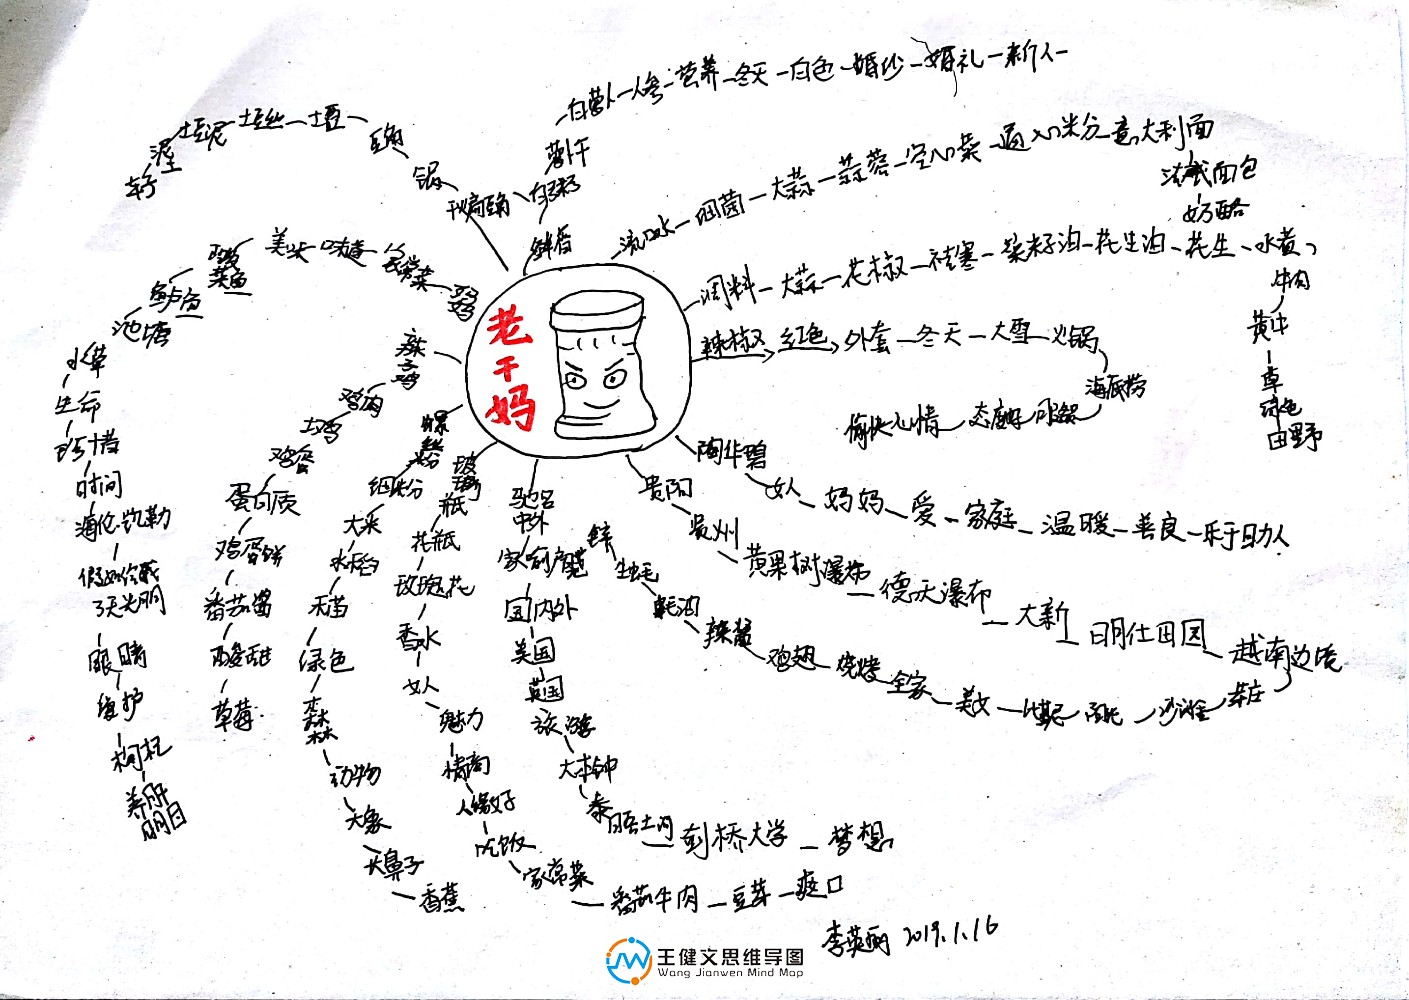 老干妈
鲜香
白粥
萝卜干
白萝卜 人参 营养 冬天 白色 婚纱 婚礼 新人
流口水 细菌 大蒜 蒜蓉 空心菜 通心米分 意大利面
法式面包
奶酪
调料 大蒜 花椒 祛寒 菜籽油 花生油 花生 水煮
牛肉
黄牛
草
绿色
田野
辣椒 红色 外套 冬天 大雪 火锅
海底捞
服务
态度好
愉快心情
陶华碧
女人 妈妈 爱 家庭 温暖 善良 乐于助人
贵阳
贵州
黄果树瀑布 德天瀑布 大新 明仕田园 越南边境
沙滩
美女 全家 烧烤 鸡翅 辣酱 蚝油 生蚝 锌
驰名中外
家喻户晓
国内外
美国
英国
旅游
大本钟
泰晤士河 剑桥大学 梦想
玻璃瓶
花瓶
玫瑰花
香水
女人
魅力
情商
人缘好
吃饭
家常菜 番茄牛肉 豆芽 爽口
螺丝粉
细粉
大米
水稻
禾苗
绿色
森林
动物
大象
长鼻子
香蕉
辣子鸡
鸡肉
土鸡
鸡蛋
蛋白质
鸡蛋饼
番茄酱
酸甜
草莓
妈妈
家常菜
味道
美味
酸菜鱼
鲈鱼
池塘
水草
生命
珍惜
时间
海伦·凯勒
假如给我
3天光明
眼睛
维护
枸杞
养肝
明目
干煸豆角
锅
豆角
土豆
土豆丝
土豆泥
泥土
李英丽 2019.1.16
王健文思维导图
Wang Jianwen Mind Map